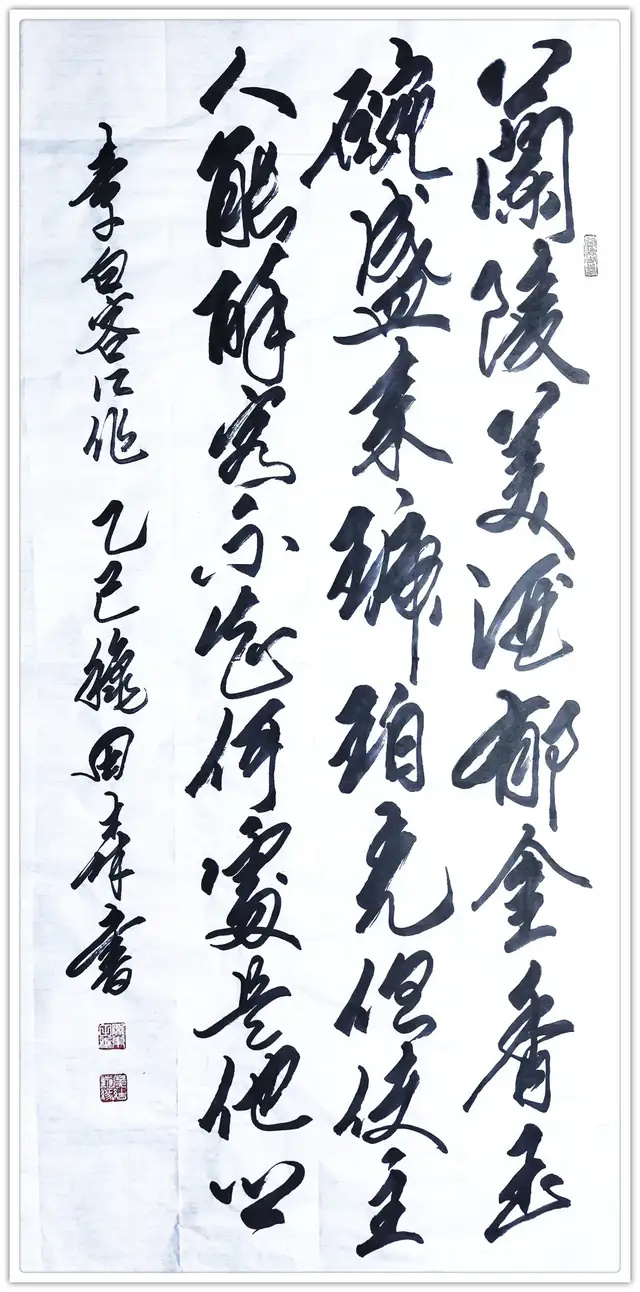 蘭陵美酒郁金香玉
碗盛来琥珀光但使主
人能醉客不知何處是他乡
李白客中作 乙巳穐 書